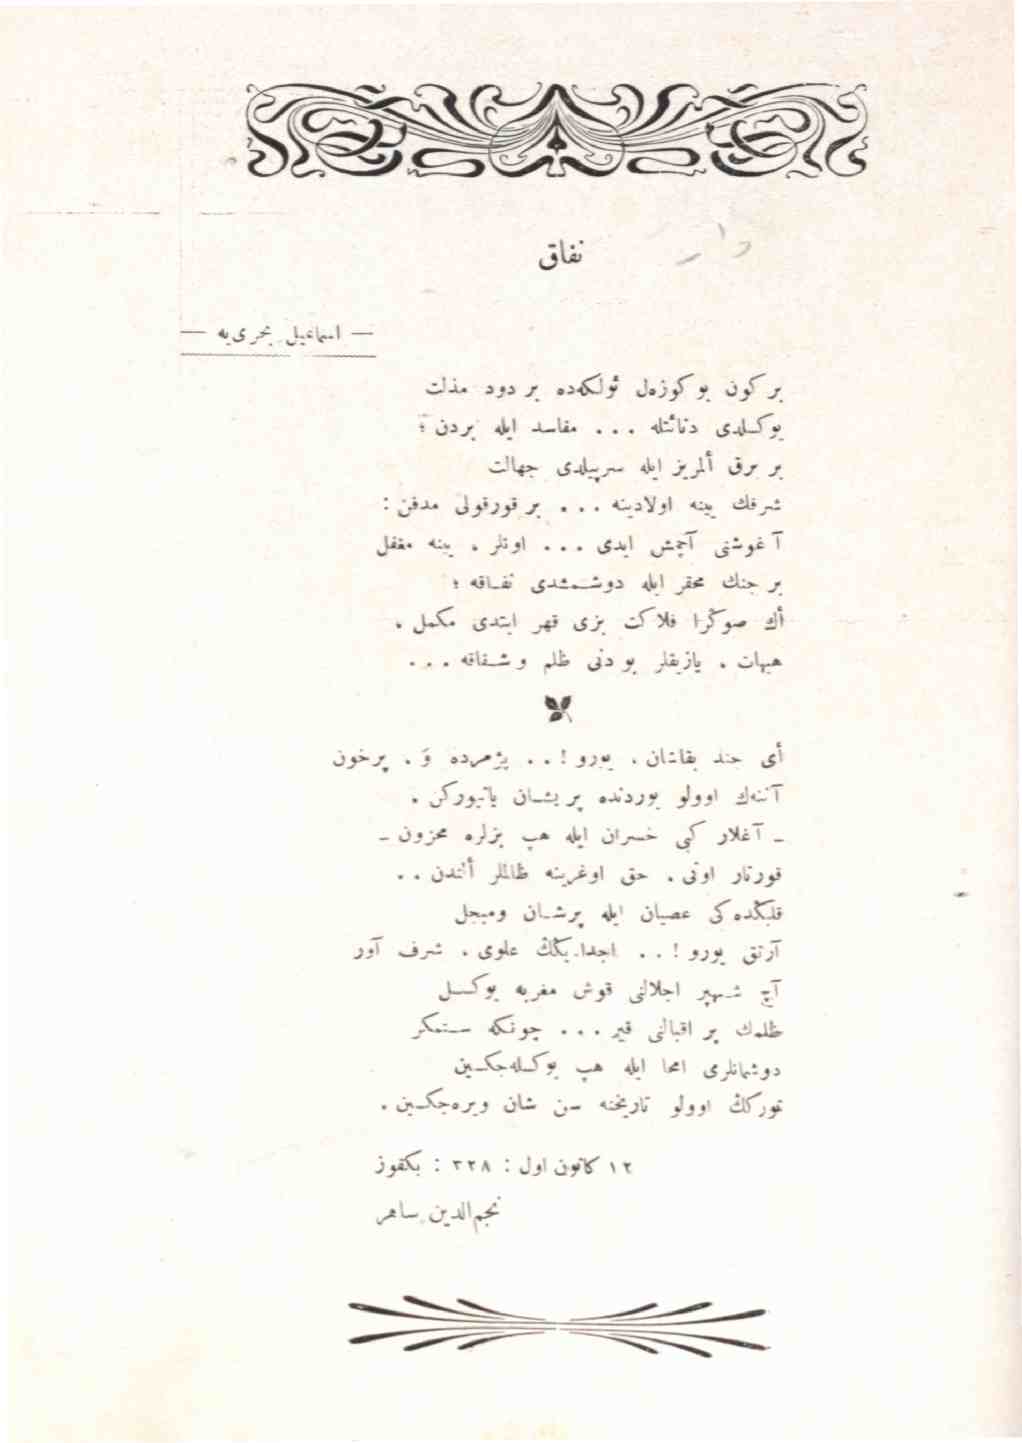 نفاق
— اسماعیل بحری‌یه —
بر كون بو كوزه‌ل ئولكه‌ده بر دود مذلت
یوكسلدی دنائتله ... مفاسد ایله بردن ؛
بر برق ألمریز ایله سرپیلدی جهالت
شرفك یینه اولادینه ... بر قورقولی مدفن :
آغوشنی آچمش ایدی ... اونلر ، یینه مغفل
بر جنك محقر ایله دوشمشدی نفاقه ؛
أك صوڭرا فلاكت بزی قهر ایتدی مكمل ،
هیهات ، یازیقلر بو دنی ظلم و شقاقه ...
أی جند بقاشان ، یورو ! .. پژمرده وَ ، پرخون
آننه‌ك اوولو یوردنده پریشان یاتیوركن ،
ـ آغلار كبی خسران ایله هپ بزلره محزون ـ
قورتار اونی ، حق اوغرینه ظالملر ألندن ..
قلبڭده‌كی عصیان ایله پرشان ومبجل
آرتق یورو ! .. اجدادیڭڭ علوی ، شرف آور
آچ شهپر اجلالنی قوش مغربه یوكسل
ظلمك پر اقبالنی قیر ... چونكه ستمكر
دوشمانلری امحا ایله هپ یوكسله‌جكسین
توركڭ اوولو تاریخنه سن شان ویره‌جكسین .
١٢ كانون اول : ٣٢٨ : بكقوز
نجم‌الدین ساهر